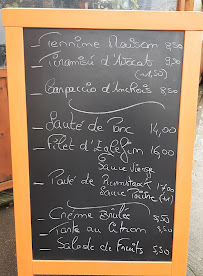 _ Terrine Maison 8,50
_ Tiramisu d'Avocat 9,50
(+1,50)
_ Carpaccio d'Anchois 8,50
_ Sauté de Porc 14,00
_ Filet d'Eglefin 16,00
Sauce Vierge
_ Pavé de 17,00
Sauce (+1)
_ Crème Brûlée 5,50
_ Tarte au Citron 5,50
_ Salade de Fruits 5,50